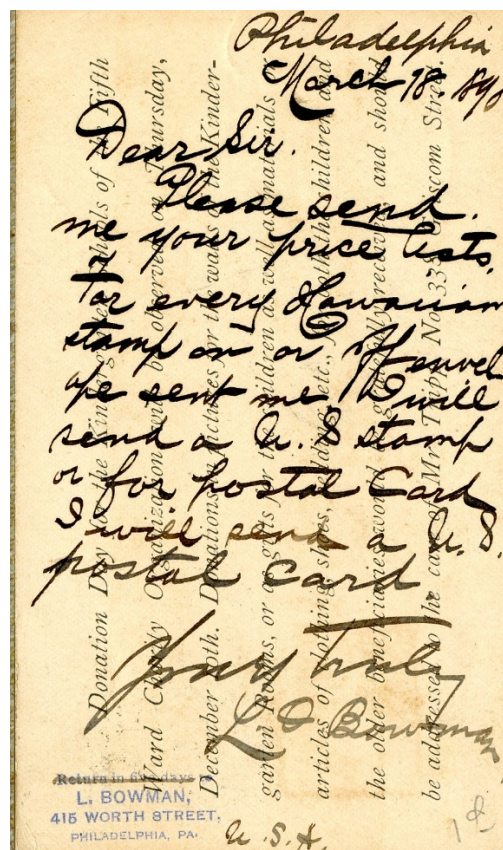 Philadelphia
March 18. 1890
Dear Sir.
Please send.
me your price lists.
For every Hawaiian
stamp on or off envel
ope sent me I will
send a U. S stamp
or for postal Card
I will send a U. S.
postal Card.
Yours Truly
L I Bowman
Return in five days to
L. BOWMAN,
415 WORTH STREET,
PHILADELPHIA, PA.
U.S.A.
Donation Day for the Kindergarten
Fifth
Ward Charity Organization
be observed on Thursday,
December
th. Donations
pictures for the walls of the Kinder-
garten Rooms, or
gifts for the children as well as materials
articles of clothing, shoes,
etc., for both the children and
the older beneficiaries
and should
be addressed to the care of Mr.
No. 333
Street.